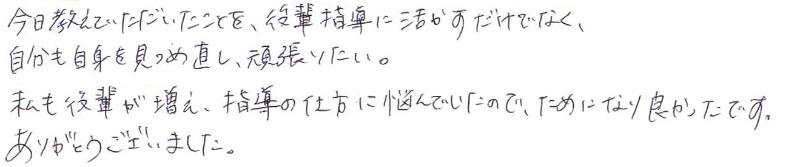 今日教えていただいたことを、後輩指導に活かすだけでなく、
自分も自身を見つめ直し、頑張りたい。
私も後輩が増え、指導の仕方に悩んでいたので、ためになり良かったです。
ありがとうございました。